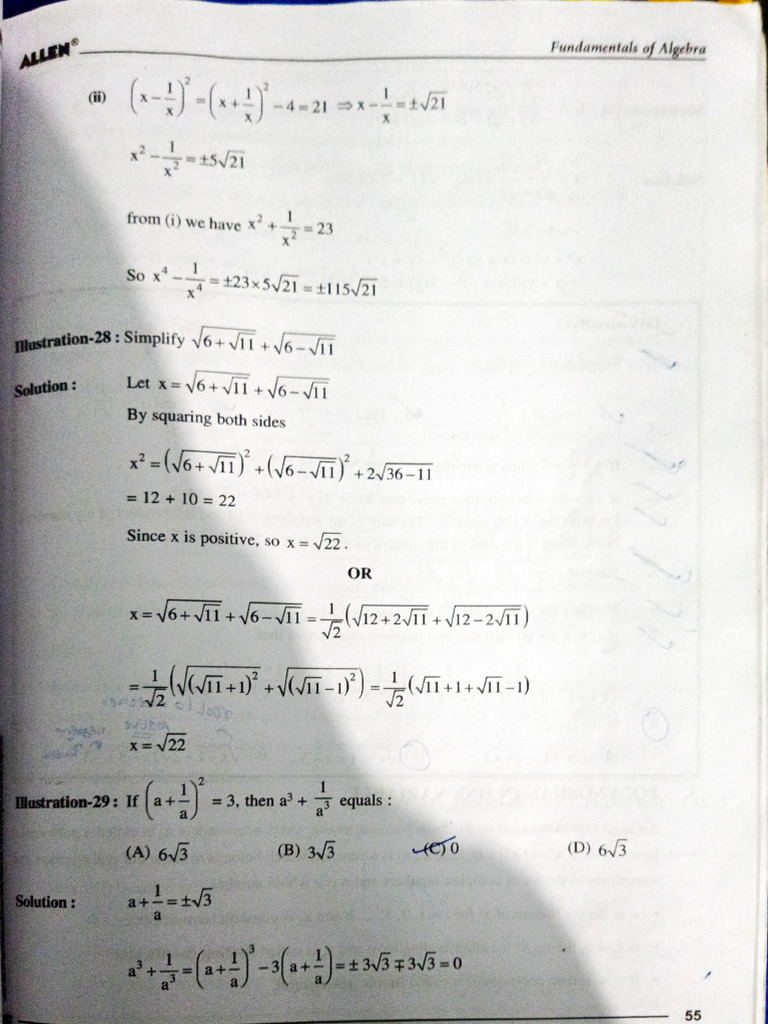 ALLEN® Fundamentals of Algebra
(ii) (x − 1/x)² = (x + 1/x)² − 4 = 21 ⇒ x − 1/x = ±√21
x² − 1/x² = ±5√21
from (i) we have x² + 1/x² = 23
So x⁴ − 1/x⁴ = ±23×5√21 = ±115√21
Illustration-28 : Simplify √(6+√11) + √(6−√11)
Solution : Let x = √(6+√11) + √(6−√11)
By squaring both sides
x² = (√(6+√11))² + (√(6−√11))² + 2√(36−11)
= 12 + 10 = 22
Since x is positive, so x = √22.
OR
x = √(6+√11) + √(6−√11) = 1/√2 (√(12+2√11) + √(12−2√11))
= 1/√2 (√((√11+1)²) + √((√11−1)²)) = 1/√2 (√11+1+√11−1)
x = √22
Illustration-29 : If (a + 1/a)² = 3, then a³ + 1/a³ equals :
(A) 6√3 (B) 3√3 (C) 0 (D) 6√3
Solution : a + 1/a = ±√3
a³ + 1/a³ = (a + 1/a)³ − 3(a + 1/a) = ± 3√3 ∓ 3√3 = 0
55